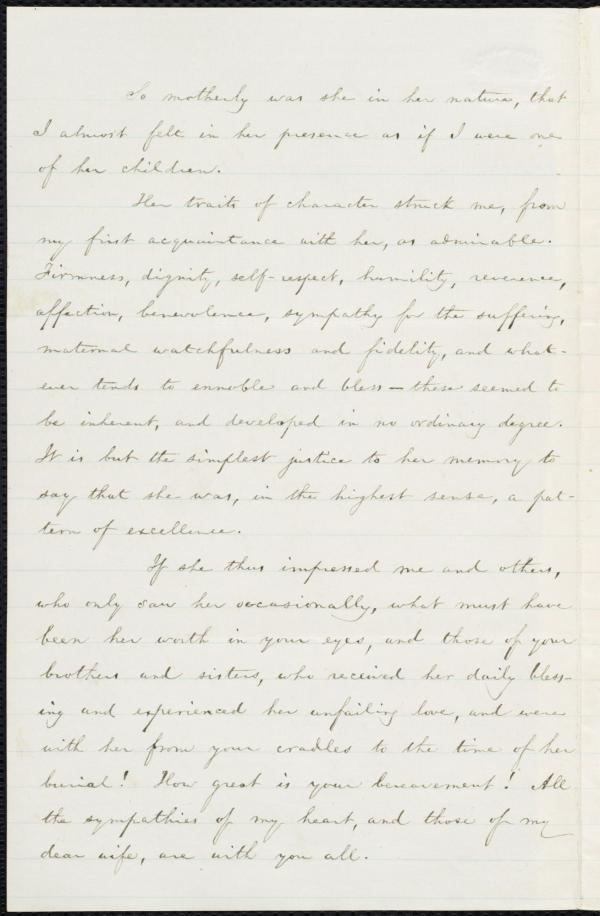 So motherly was she in her nature, that
I almost felt in her presence as if I were one
of her children.
Her traits of character struck me, from
my first acquaintance with her, as admirable.
Firmness, dignity, self-respect, humility, reverence,
affection, benevolence, sympathy for the suffering,
maternal watchfulness and fidelity, and what-
ever tends to ennoble and bless — these seemed to
be inherent, and developed in no ordinary degree.
It is but the simplest justice to her memory to
say that she was, in the highest sense, a pat-
tern of excellence.
If she thus impressed me and others,
who only saw her occasionally, what must have
been her worth in your eyes, and those of your
brothers and sisters, who received her daily bless-
ing and experienced her unfailing love, and were
with her from your cradles to the time of her
burial! How great is your bereavement! All
the sympathies of my heart, and those of my
dear wife, are with you all.